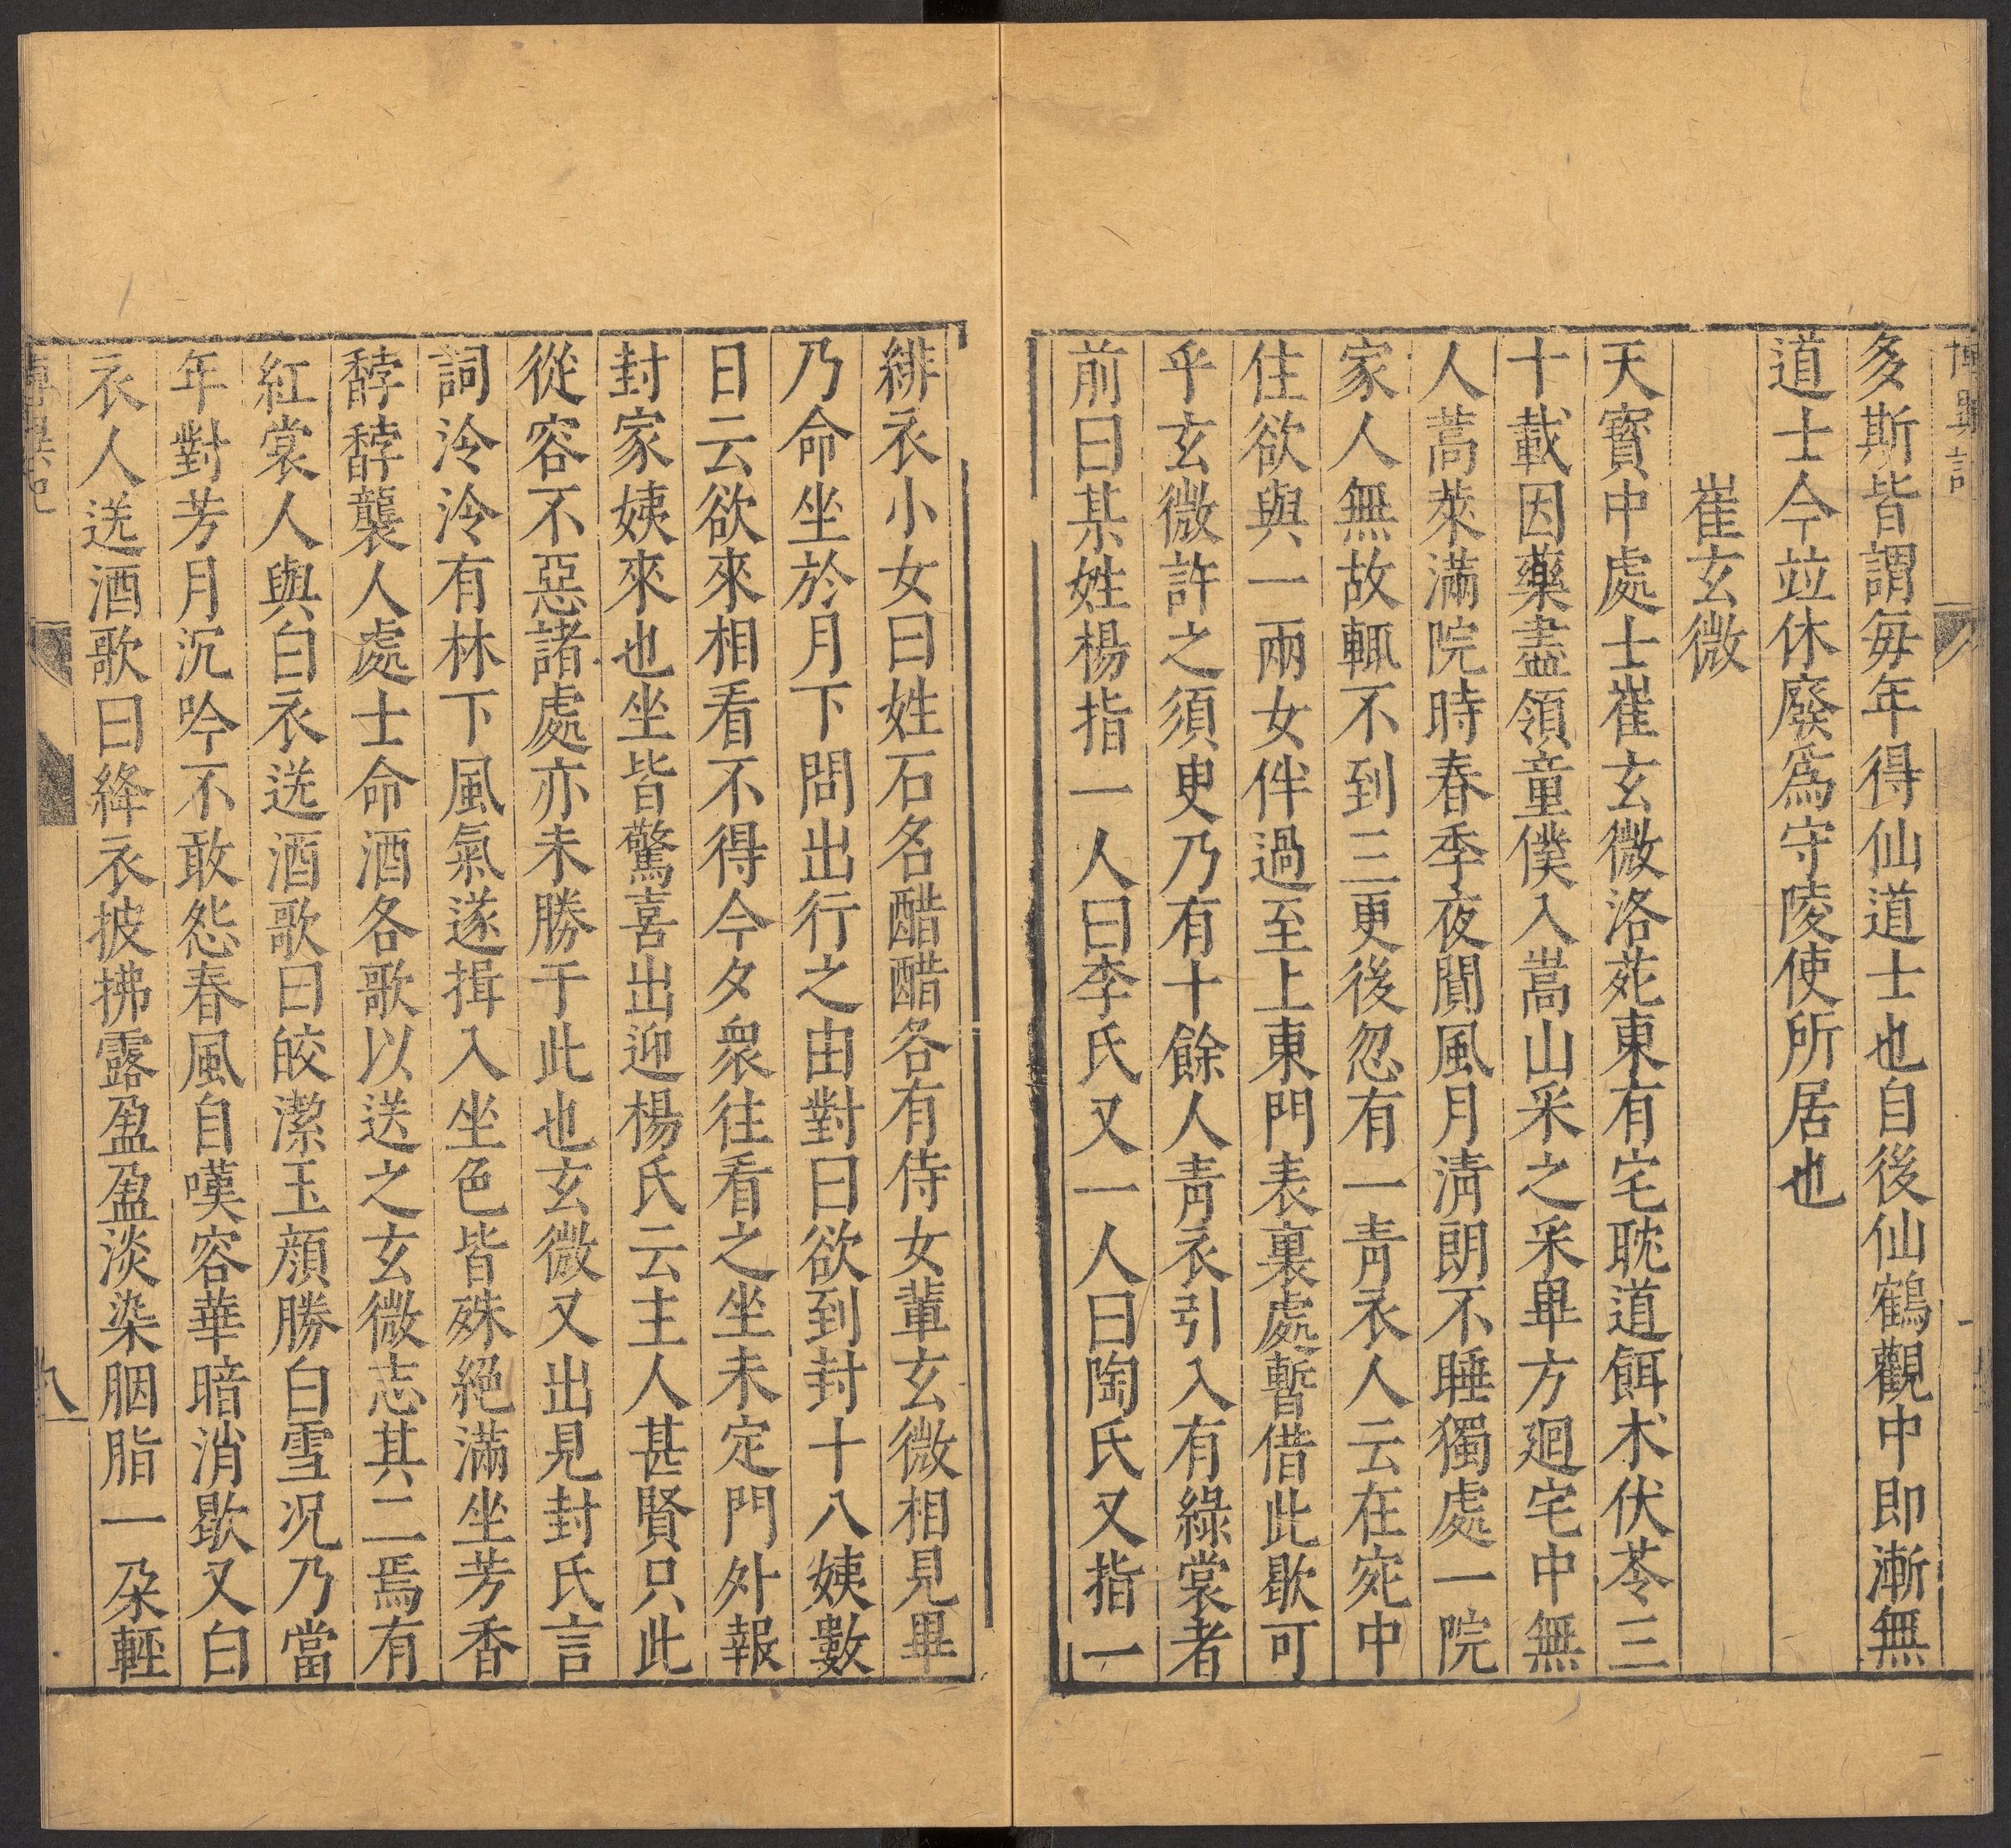 博異記
多斯皆謂每年得仙道士也自後仙鶴觀中即漸無
道士今竝休廢爲守陵使所居也
崔玄微
天寶中處士崔玄微洛苑東有宅耽道餌术伏苓三
十載因藥盡領童僕入嵩山采之采畢方迴宅中無
人蒿萊滿院時春季夜閒風月淸朗不睡獨處一院
家人無故輒不到三更後忽有一靑衣人云在宛中
住欲與一兩女伴過至上東門表裏處暫借此歇可
乎玄微許之須臾乃有十餘人靑衣引入有綠裳者
前曰某姓楊指一人曰李氏又一人曰陶氏又指一
緋衣小女曰姓石名醋醋各有侍女輩玄微相見畢
乃命坐於月下問出行之由對曰欲到封十八姨數
日云欲來相看不得今夕衆往看之坐未定門外報
封家姨來也坐皆驚喜出迎楊氏云主人甚賢只此
從容不惡諸處亦未勝于此也玄微又出見封氏言
詞泠泠有林下風氣遂揖入坐色皆殊絕滿坐芳香
馞馞襲人處士命酒各歌以送之玄微志其二焉有
紅裳人與白衣送酒歌曰皎潔玉顔勝白雪况乃當
年對芳月沉吟不敢怨春風自嘆容華暗消歇又白
衣人送酒歌曰絳衣披拂露盈盈淡染胭脂一朶輕
博異記
八